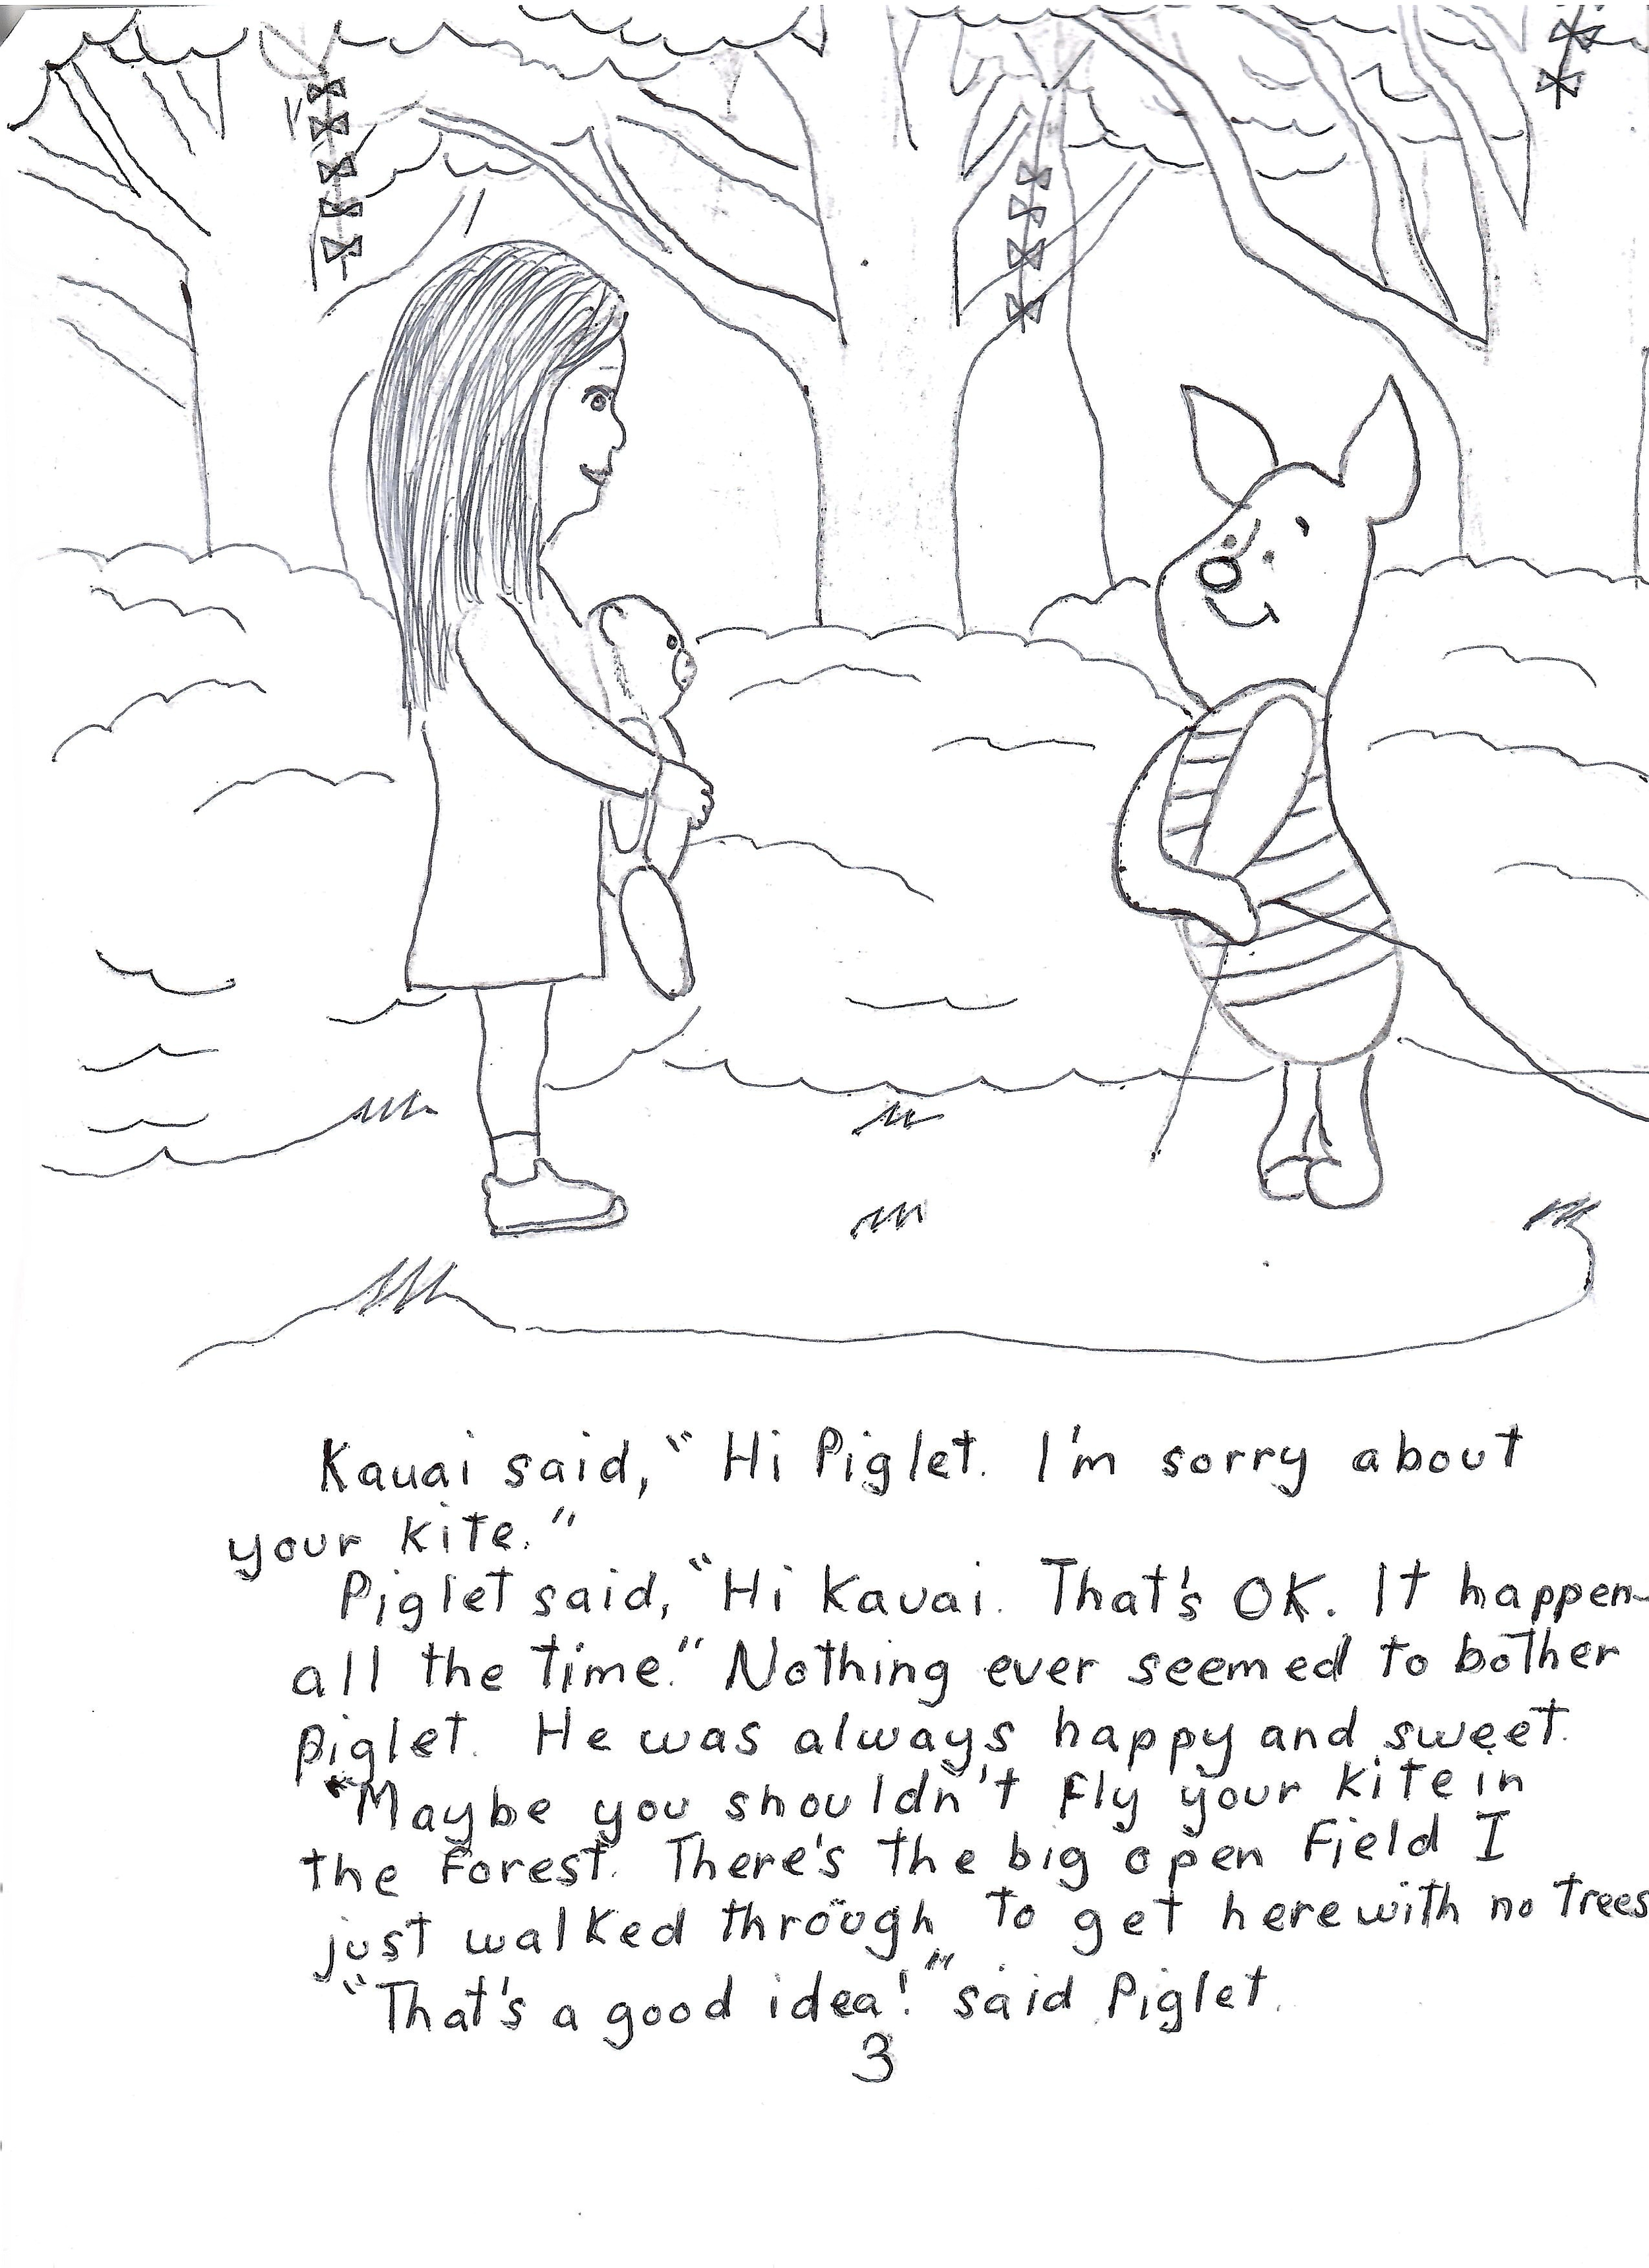 Kauai said, "Hi Piglet. I'm sorry about
your kite."
Piglet said, "Hi Kauai. That's OK. It happen
all the time." Nothing ever seemed to bother
Piglet. He was always happy and sweet.
"Maybe you shouldn't fly your kite in
the forest. There's the big open field I
just walked through to get here with no trees
"That's a good idea!" said Piglet.
3